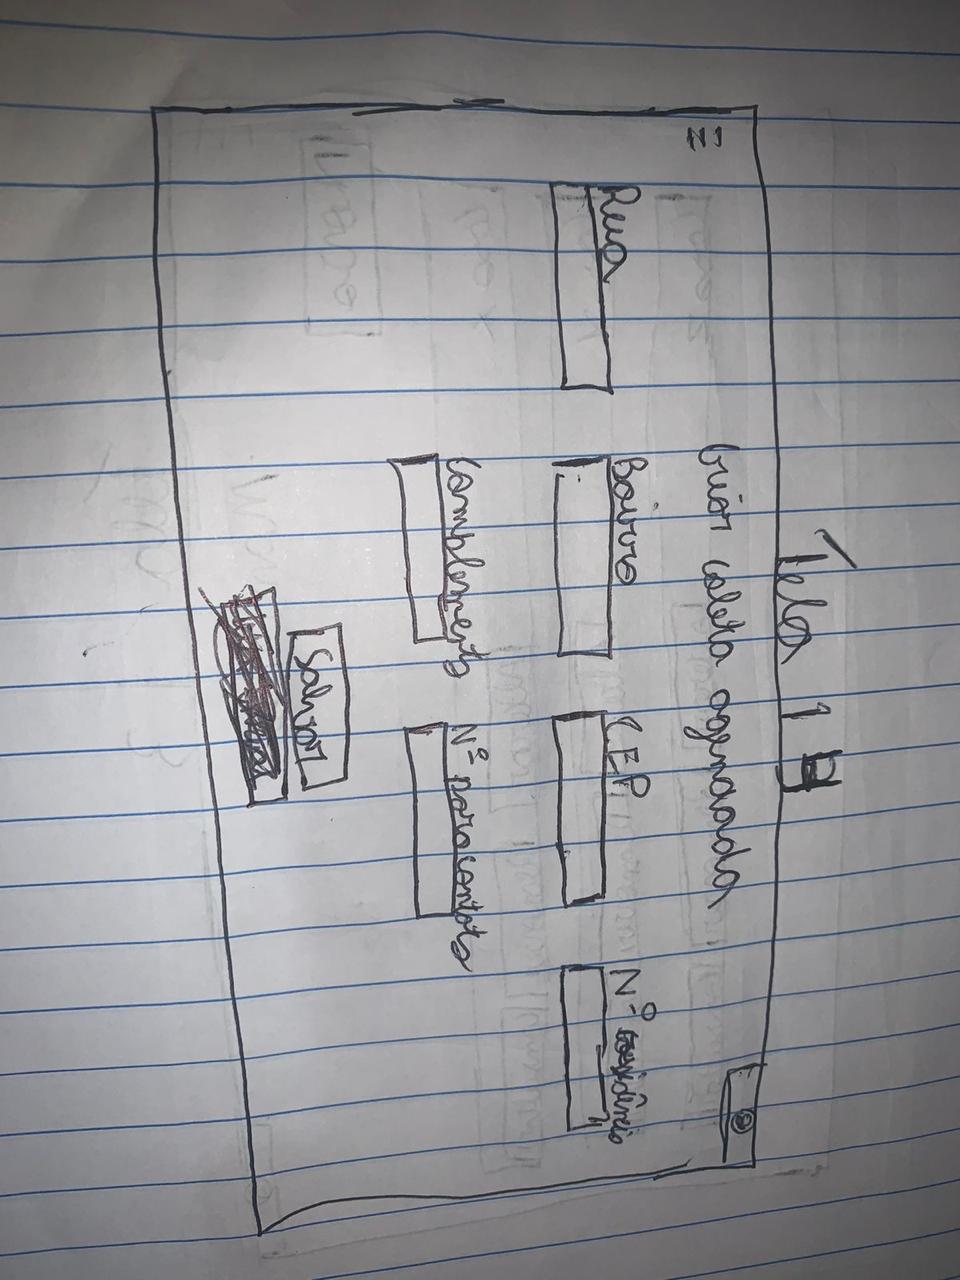 Tela 19
Criar coleta agendada
Rua
Bairro
CEP
Nº residência
Complemento
Nº para contato
Salvar